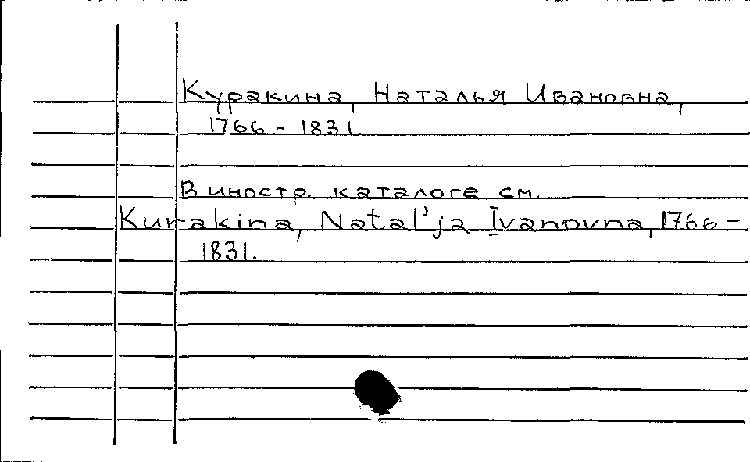 Куракина, Наталья Ивановна,
1766 - 1831
В иностр. каталоге см.
Kurakina, Natal'ja Ivanovna, 1766 -
1831.